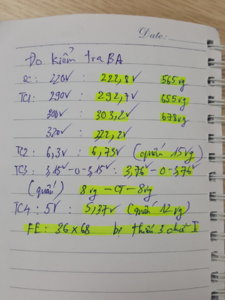 Date:
Đo kiểm tra BA
SC: 220V : 222,8V 565vg
TC1: 290V : 292,7V 655vg
300V : 303,2V 678vg
320V : 322,2V
TC2: 6,3V : 6,73V (quấn 15vg)
TC3: 3,15V-0-3,15V: 3,76-0-3,76V
(quấn) 8vg - 0 - 8vg
TC4: 5V : 5,37V (quấn 12vg)
FE: 36x68 bị thiếu 3 chữ I